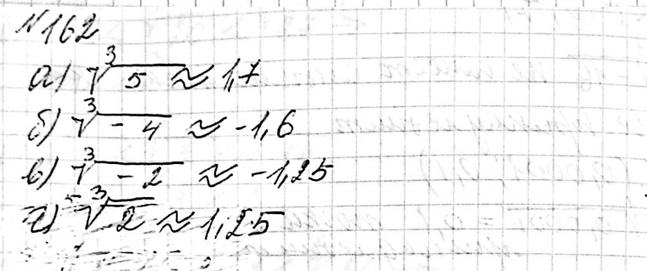 №162
а) ∛5 ≈ 1,7
б) ∛-4 ≈ -1,6
в) ∛-2 ≈ -1,25
г) ∛2 ≈ 1,25